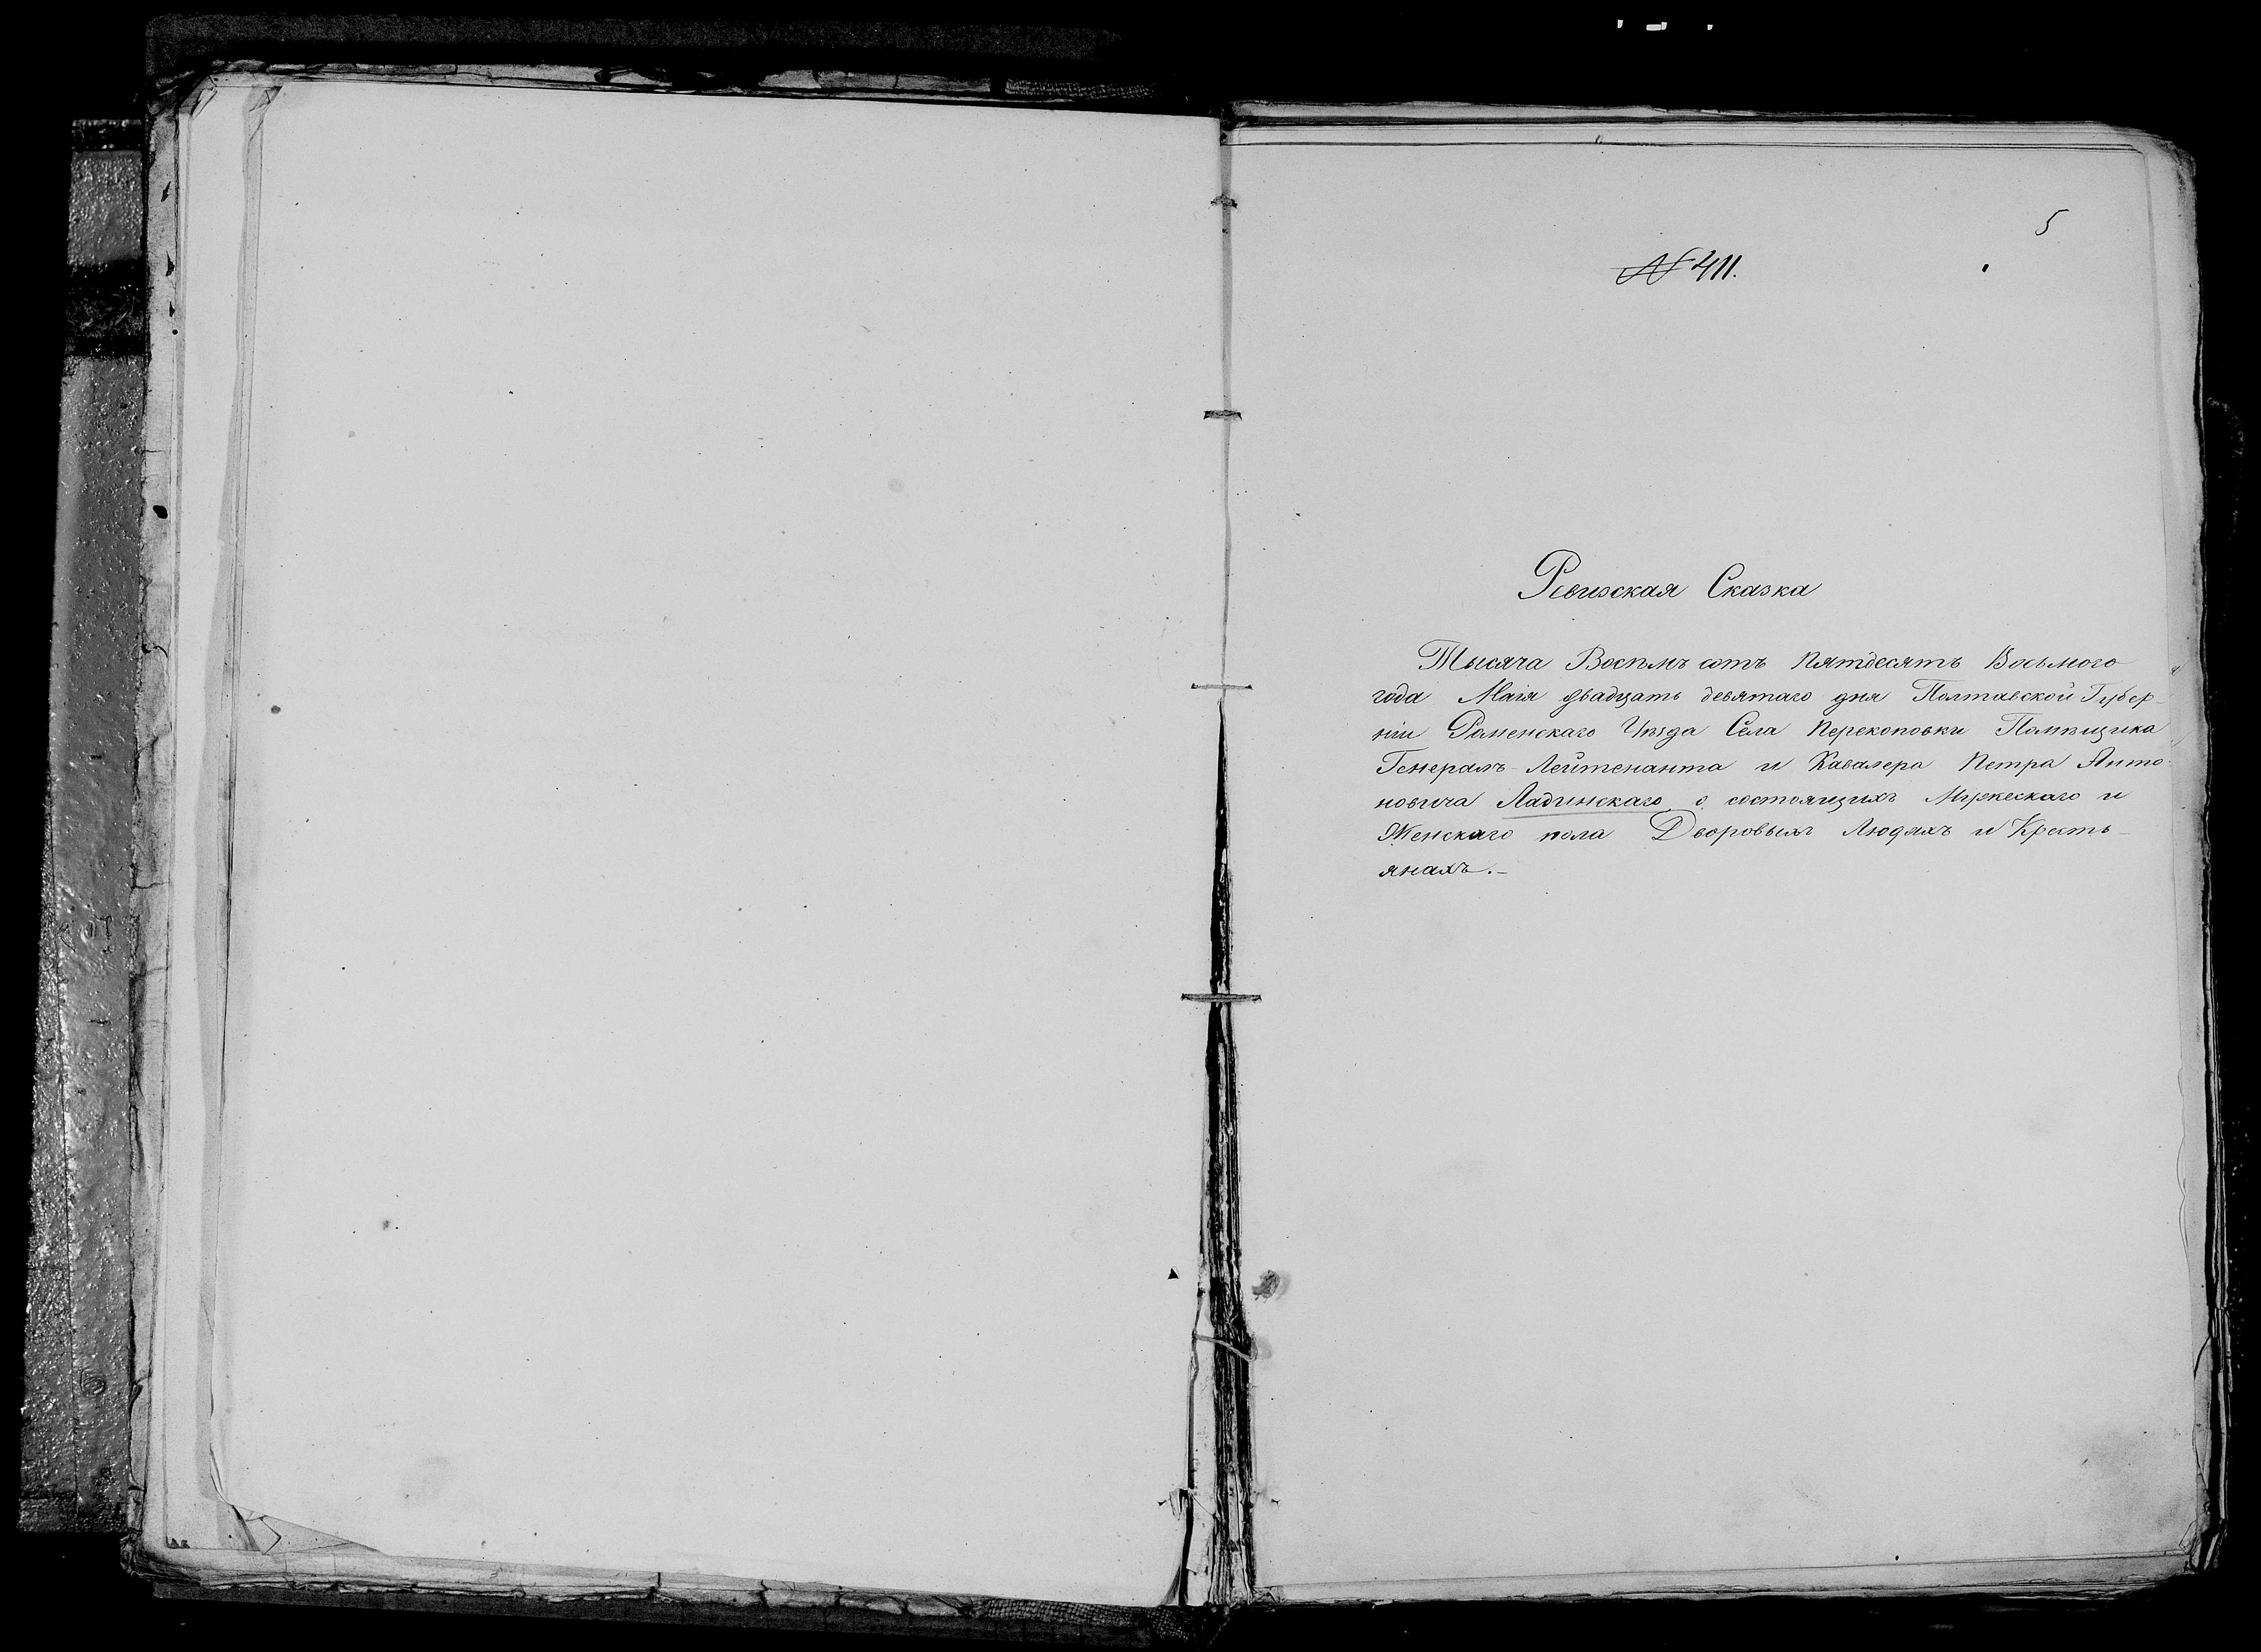 5
№ 411.
Ревизская Сказка
Тысяча Восемъ сотъ Пятдесятъ Восьмого
года Маія двадцать девятаго дня Полтавской Губер-
ніи Роменскаго Уѣзда Села Перекоповки Помѣщика
Генералъ-Лейтенанта и Кавалера Петра Анто-
новича Ладинскаго о состоящихъ Мужескаго и
Женскаго пола Дворовыхъ Людяхъ и Кресть-
янахъ.-